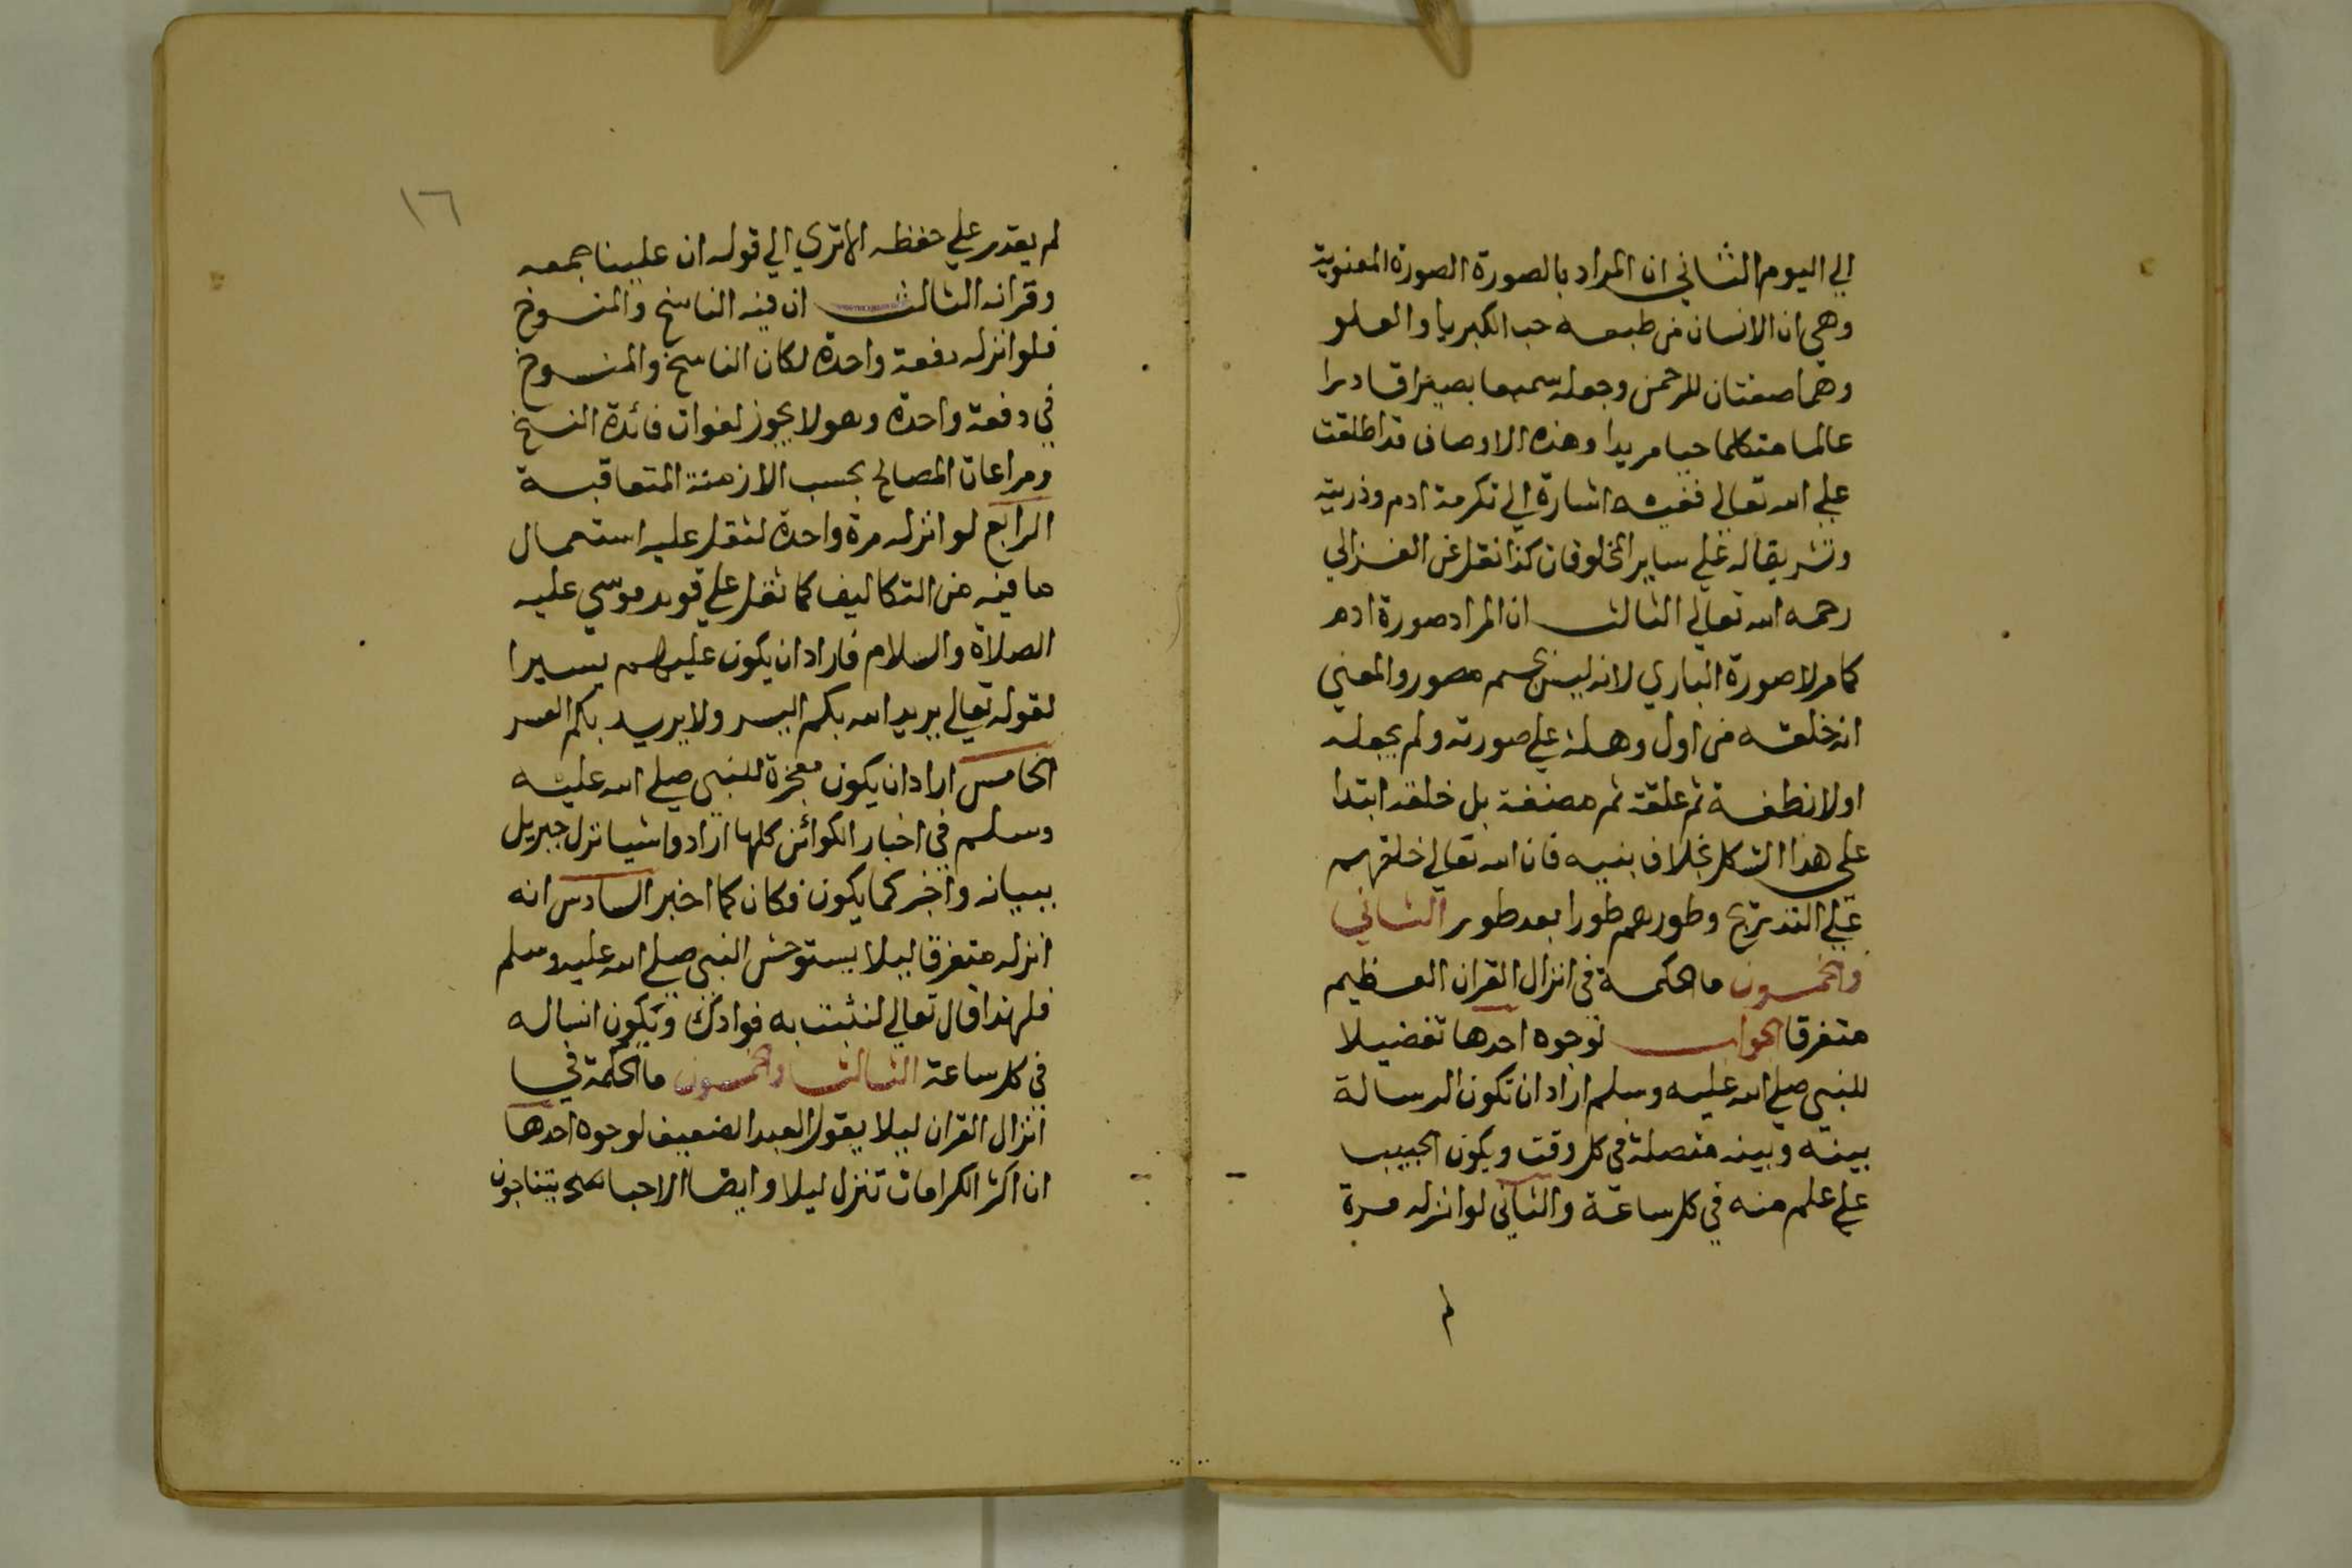 الي اليوم الثاني ان المراد بالصورة الصورة المعنوية
وهي ان الانسان من طبعه حب الكبريا والعلو
وهما صفتان للرحمن وجعله سميعا بصيرا قادرا
عالما متكلما حيا مريدا وهذه الاوصاف قد اطلقت
علي الله تعالي ففيه اشارة الي تكرمة ادم وذريته
وتشريفا له علي ساير المخلوقات كذا نقل عن الغزالي
رحمه الله تعالي الثالث ان المراد صورة ادم
كما مر لا صورة الباري لانه ليس بجسم مصور والمعني
انه خلقه من اول وهلة علي صورته ولم يجعله
اولا نطفة ثم علقة ثم مضغة بل خلقه ابتدا
علي هذا الشكل بخلاف بنيه فان الله تعالي خلقهم
علي التدريج وطورهم طورا بعد طور الثاني
والخمسون ما الحكمة في انزال القران العظيم
متفرقا الجواب لوجوه احدها تفضيلا
للنبي صلي الله عليه وسلم اراد ان تكون الرسالة
بينه وبينه متصلة في كل وقت ويكون الحبيب
علي علم منه في كل ساعة والثاني لو انزله مرة
لم
١٦
لم يقدر علي حفظه الا تري الي قوله ان علينا جمعه
وقرانه الثالث ان فيه الناسخ والمنسوخ
فلو انزله دفعة واحدة لكان الناسخ والمنسوخ
في دفعة واحدة وهو لا يجوز لفوات فائدة النسخ
ومراعات المصالح بحسب الازمنة المتعاقبة
الرابع لو انزله مرة واحدة لثقل عليه استعمال
ما فيه من التكاليف كما ثقل علي قوم موسي عليه
الصلاة والسلام فاراد ان يكون عليهم يسيرا
لقوله تعالي يريد الله بكم اليسر ولا يريد بكم العسر
الخامس اراد ان يكون معجزة للنبي صلي الله عليه
وسلم في اخبار الكوائن كلها ارادوا شيا نزل جبريل
ببيانه واخبر كما يكون فكان كما اخبر السادس انه
انزله متفرقا ليلا يستوحش النبي صلي الله عليه وسلم
فلهذا قال تعالي لنثبت به فوادك ويكون انسا له
في كل ساعة الثالث والخمسون ما الحكمة في
انزال القران ليلا يقول العبد الضعيف لوجوه احدها
ان اكثر الكرامات تنزل ليلا وايضا الاحبا يتناجون